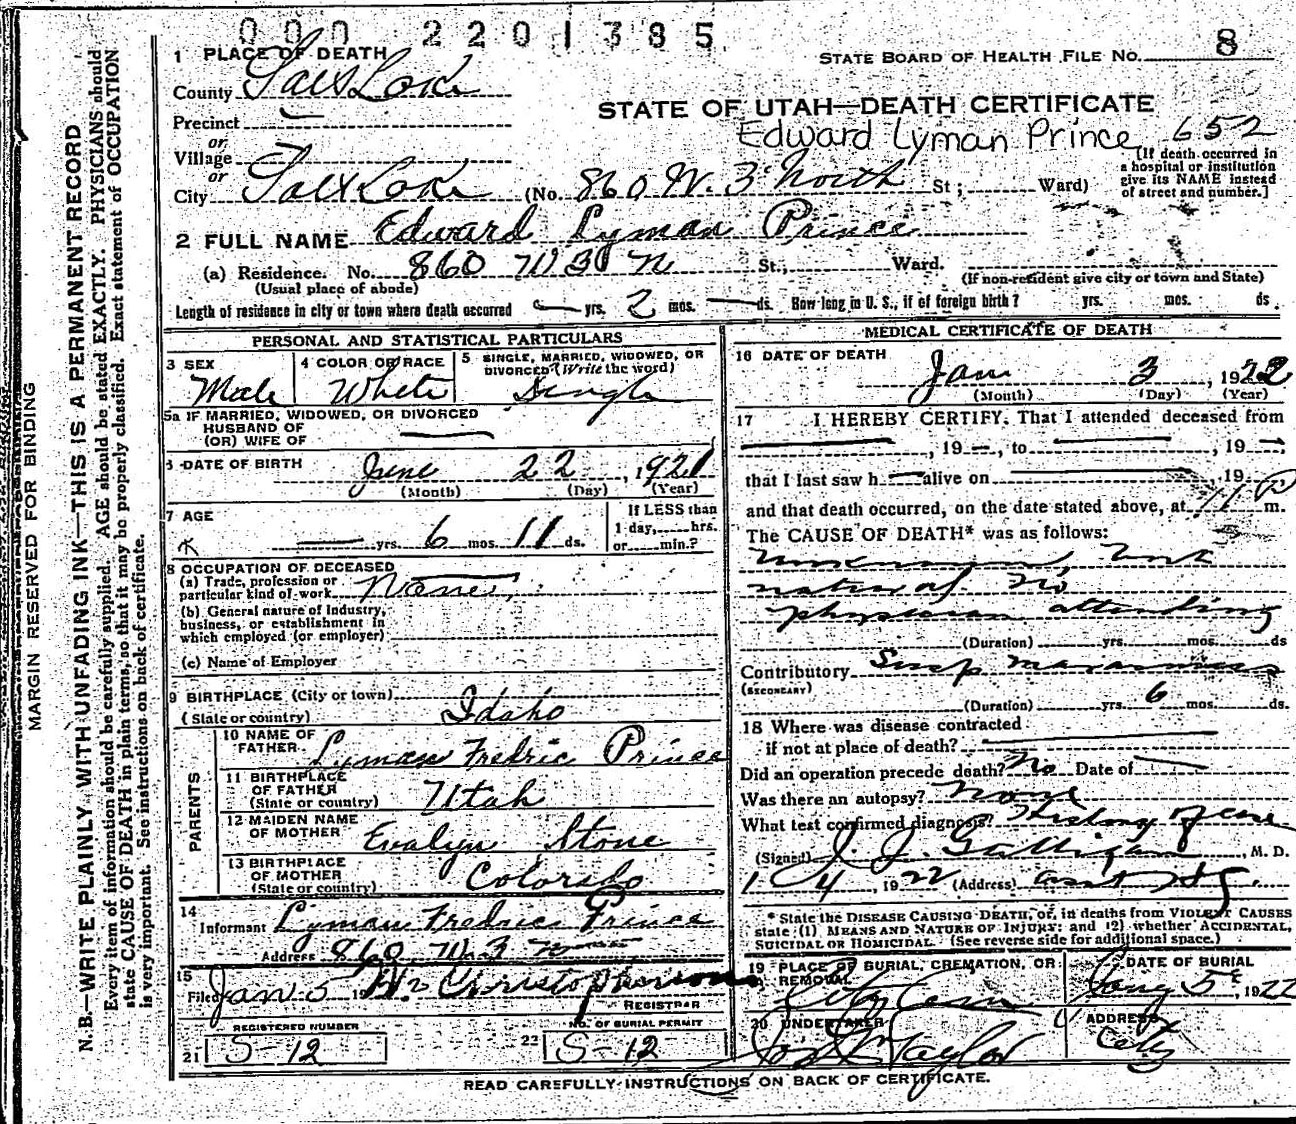 000 2201385
1 PLACE OF DEATH
STATE BOARD OF HEALTH FILE NO. 8
County Salt Lake
STATE OF UTAH—DEATH CERTIFICATE
Precinct
Edward Lyman Prince 652
or
Village
or
City Salt Lake (No. 860 W. 3rd North St; Ward)
[If death occurred in
a hospital or institution
give its NAME instead
of street and number.]
2 FULL NAME Edward Lyman Prince
(a) Residence. No. 860 W 3 N St., Ward.
(Usual place of abode)
(If non-resident give city or town and State)
Length of residence in city or town where death occurred — yrs. 2 mos. — ds. How long in U. S., if of foreign birth? yrs. mos. ds.
PERSONAL AND STATISTICAL PARTICULARS
3 SEX
Male
4 COLOR OR RACE
White
5 SINGLE, MARRIED, WIDOWED, OR
DIVORCED (Write the word)
Single
5a IF MARRIED, WIDOWED, OR DIVORCED
HUSBAND OF
(OR) WIFE OF
6 DATE OF BIRTH June 22, 1921
(Month) (Day) (Year)
7 AGE
— yrs. 6 mos. 11 ds.
If LESS than
1 day, hrs.
or min.?
8 OCCUPATION OF DECEASED
(a) Trade, profession or
particular kind of work None
(b) General nature of Industry,
business, or establishment in
which employed (or employer)
(c) Name of Employer
9 BIRTHPLACE (City or town)
(State or country) Idaho
PARENTS
10 NAME OF
FATHER Lyman Fredric Prince
11 BIRTHPLACE
OF FATHER
(State or country) Utah
12 MAIDEN NAME
OF MOTHER Evalyn Stone
13 BIRTHPLACE
OF MOTHER
(State or country) Colorado
14
Informant Lyman Fredric Prince
Address 860 W 3 N
15
Filed Jan 5 19 Wm Christopherson
REGISTRAR
REGISTERED NUMBER
21 S-12
NO. OF BURIAL PERMIT
22 S-12
MEDICAL CERTIFICATE OF DEATH
16 DATE OF DEATH
Jan 3, 1922
(Month) (Day) (Year)
17 I HEREBY CERTIFY, That I attended deceased from
, 19—, to , 19—,
that I last saw h— alive on , 19
and that death occurred, on the date stated above, at 11 P m.
The CAUSE OF DEATH* was as follows:
natural. No
physician attending
(Duration) yrs. mos. ds
Contributory marasmus
(SECONDARY)
(Duration) yrs. 6 mos. ds.
18 Where was disease contracted
if not at place of death?
Did an operation precede death? No Date of —
Was there an autopsy? None
What test confirmed diagnosis? History of case
(Signed) J. J. Galligan, M. D.
1 4, 1922 (Address)
* State the DISEASE CAUSING DEATH, or, in deaths from VIOLENT CAUSES
state (1) MEANS AND NATURE OF INJURY: and (2) whether ACCIDENTAL,
SUICIDAL OR HOMICIDAL. (See reverse side for additional space.)
19 PLACE OF BURIAL, CREMATION, OR
REMOVAL
City Cem
DATE OF BURIAL
Jany 5, 1922
20 UNDERTAKER
Taylor
ADDRESS
City
READ CAREFULLY INSTRUCTIONS ON BACK OF CERTIFICATE.
MARGIN RESERVED FOR BINDING
N. B.—WRITE PLAINLY WITH UNFADING INK—THIS IS A PERMANENT RECORD
Every item of information should be carefully supplied. AGE should be stated EXACTLY. PHYSICIANS should
state CAUSE OF DEATH in plain terms, so that it may be properly classified. Exact statement of OCCUPATION
is very important. See instructions on back of certificate.